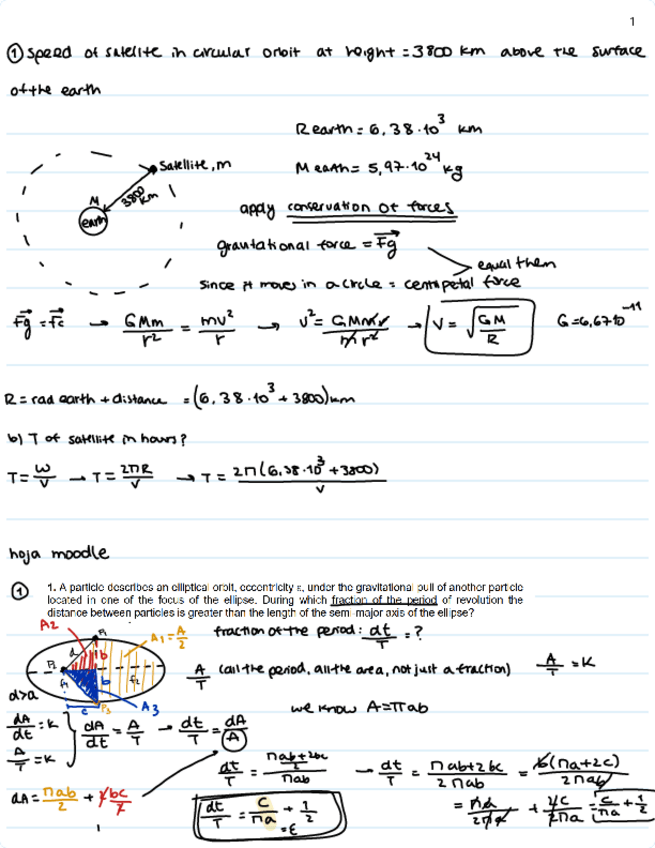 1
① Speed of satellite in circular orbit at height = 3800 km above the surface
of the earth
R earth = 6,38·10³ km
Satellite, m
M earth = 5,97·10²⁴ kg
3800 km
M
earth
apply conservation of forces
gravitational force = Fg
equal them
since it moves in a circle = centripetal force
Fg = Fc → GMm/r² = mv²/r → v² = GMmr/mr² → V = √(GM/R) G = 6,67·10⁻¹¹
R = rad earth + distance = (6,38·10³ + 3800) km
b) T of satellite in hours?
T = W/V → T = 2πR/V → T = 2π(6,38·10³ + 3800)/V
hoja moodle
① 1. A particle describes an elliptical orbit, eccentricity ε, under the gravitational pull of another particle
located in one of the focus of the ellipse. During which fraction of the period of revolution the
distance between particles is greater than the length of the semi-major axis of the ellipse?
A2
P1
A1 = A/2
fraction of the period: dt/T = ?
d
b
A/T (all the period, all the area, not just a fraction) A/T = K
b
f1
f2
P2
c
A3
d>a
we know A = πab
dA/dt = K
A/T = K
dA/dt = A/T → dt/T = dA/A
dt/T = (πab+2bc)/2/πab → dt/T = πab+2bc/2πab = b(πa+2c)/2πab
dA = πab/2 + 2bc/2
= πa/2πa + 2c/2πa = c/πa + 1/2
dt/T = c/πa + 1/2
= ε